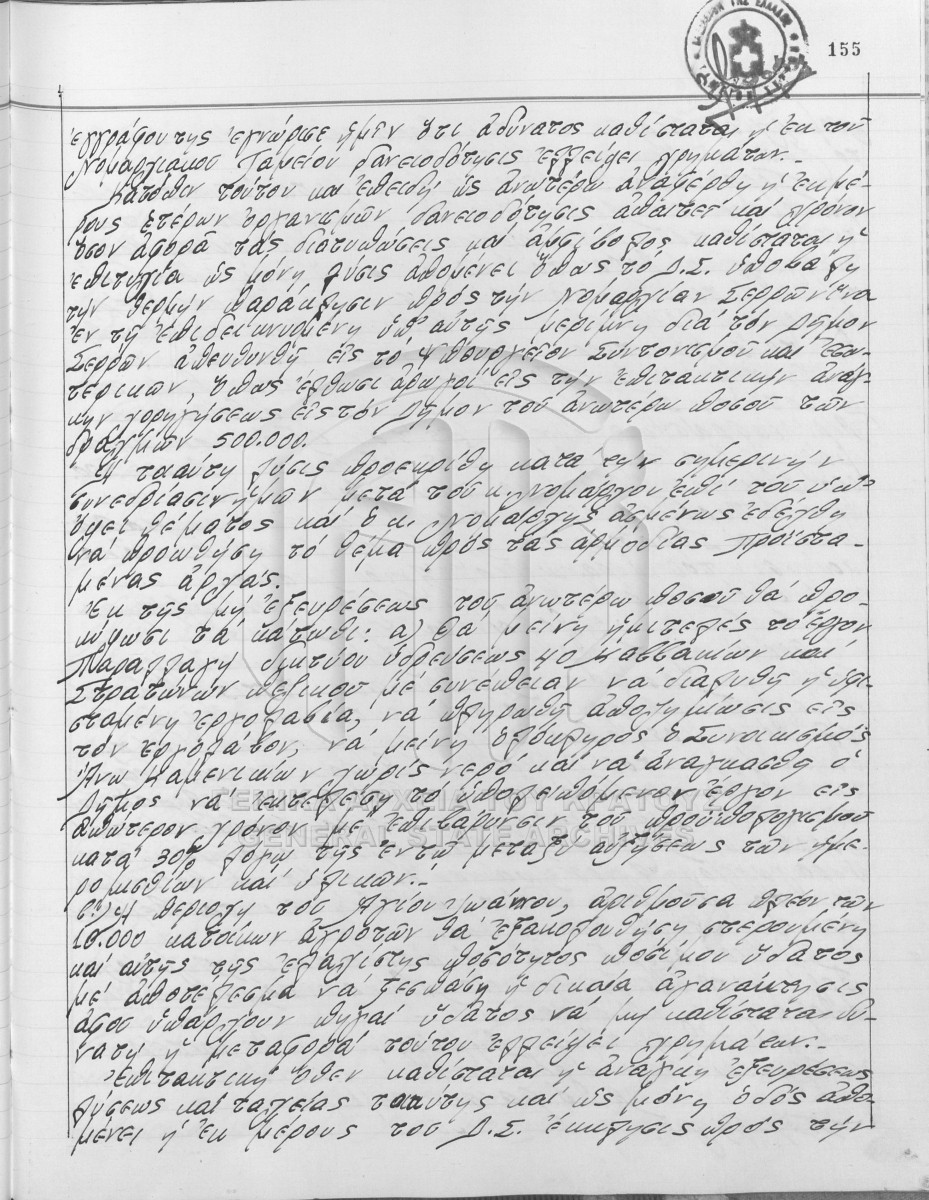 155
ἐγγράφου της ἐγνώρισε ἡμῖν ὅτι ἀδύνατος καθίσταται ἡ ἐκ τοῦ
Νομαρχιακοῦ Ταμείου δανειοδότησις ἐλλείψει χρημάτων.-
Κατόπιν τούτου καί ἐπειδή ὡς ἀνωτέρω ἀνεφέρθη ἡ ἐκ μέ-
ρους ἑτέρων ὀργανισμῶν δανειοδότησις ἀπαιτεῖ καί χρόνον
ὅσον ἀφορᾶ τάς διατυπώσεις καί ἀμφίβολος καθίσταται ἡ
ἐπιτυχία ὡς μόνη λύσις ἀπομένει ὅπως τό Δ.Σ. ὑποβάλη
τήν θερμήν παράκλησιν πρός τήν Νομαρχίαν Σερρῶν ἵνα
ἐν τῇ ἐπιδεικνυομένη ὑπ' αὐτῆς μερίμνη διά τόν Δῆμον
Σερρῶν ἀπευθυνθῆ εἰς τό Ὑπουργεῖον Συντονισμοῦ καί Ἐσω-
τερικῶν, ὅπως ἔλθωσι ἀρωγοί εἰς τήν ἐπιτακτικήν ἀνάγ-
κην χορηγήσεως εἰς τόν Δῆμον τοῦ ἀνωτέρω ποσοῦ τῶν
δραχμῶν 500.000.
Ἡ τοιαύτη λύσις προεκρίθη κατά τήν σημερινήν
συνεδρίασιν ἡμῶν μετά τοῦ κ. Νομάρχου ἐπί τοῦ ὑπ'
ὄψει θέματος καί ὁ κ. Νομάρχης ἀσμένως ἐδέχθη
νά προωθήση τό θέμα πρός τάς ἁρμοδίας Προϊστα-
μένας ἀρχάς.
Ἐκ τῆς μή ἐξευρέσεως τοῦ ἀνωτέρω ποσοῦ θά προ-
κύψωσι τά κάτωθι: α) Θά μείνη ἡμιτελές τό ἔργον
Παραλλαγή δικτύου ὑδρεύσεως 40 Μαρτύρων καί
Στρατώνων πεζικοῦ μέ συνέπειαν νά διαλυθῆ ἡ ὑφι-
σταμένη ἐργολαβία, νά πληρωθῆ ἀποζημίωσις εἰς
τόν ἐργολάβον, νά μείνη ὁλόκληρος ὁ Συνοικισμός
Ἄνω Καμενικίων χωρίς νερό καί νά ἀναγκασθῆ ὁ
Δῆμος νά ἐκτελέση τό ὑπολειπόμενον ἔργον εἰς
ἀπώτερον χρόνον μέ ἐπιβάρυνσιν τοῦ προϋπολογισμοῦ
κατά 30% λόγω τῆς ἐν τῶ μεταξύ αὐξήσεως τῶν ἡμε-
ρομισθίων καί ὑλικῶν.-
β) Ἡ περιοχή τοῦ Ἁγίου Ἰωάννου, ἀριθμοῦσα πλέον τῶν
10.000 κατοίκων ἀγροτῶν θά ἐξακολουθήση στερουμένη
καί αὐτῆς τῆς ἐλαχίστης ποσότητος ποσίμου ὕδατος
μέ ἀποτέλεσμα νά ξεσπάση ἡ δικαία ἀγανάκτησις
ἀφοῦ ὑπάρχουν πηγαί ὕδατος νά μή καθίσταται δυ-
νατή ἡ μεταφορά τούτου ἐλλείψει χρημάτων.-
Ἐπιτακτική ὅθεν καθίσταται ἡ ἀνάγκη ἐξευρέσεως
λύσεως καί ταχείας τοιαύτης καί ὡς μόνη ὁδός ἀπο-
μένει ἡ ἐκ μέρους τοῦ Δ.Σ. ἔκκλησις πρός τήν
ΓΕΝΙΚΑ ΑΡΧΕΙΑ ΤΟΥ ΚΡΑΤΟΥΣ
GENERAL STATE ARCHIVES